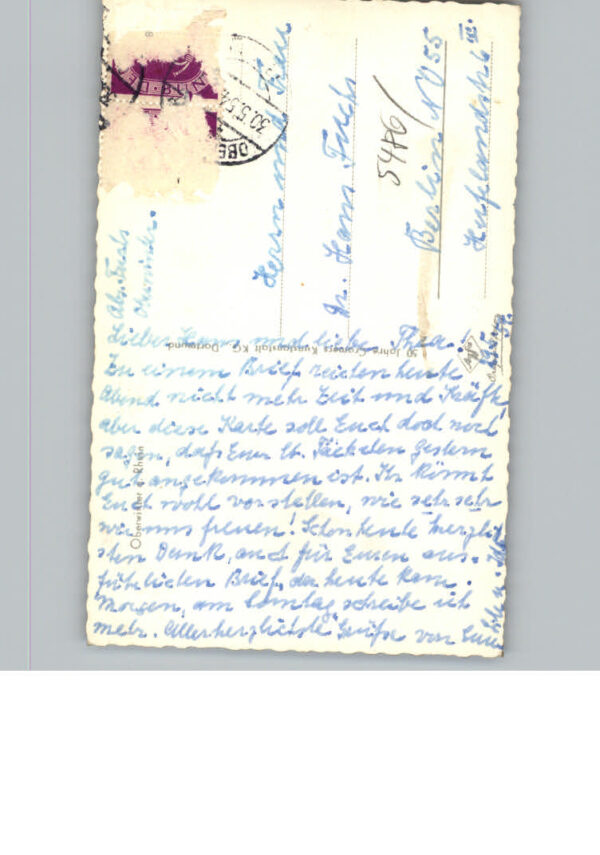 Herrn und Frau
Dr. Hans Fuchs
Berlin NO 55
Hufelandstr. 6 III.
5476
Abs. Fuchs
Oberwinter.
30.5.54
OBE
50 Jahre Cramers Kunstanstalt KG, Dortmund
Oberwinter a. Rhein
Lieber Hans und liebe Thea!
Zu einem Brief reichten heute
Abend nicht mehr Zeit und Kräfte
aber diese Karte soll Euch doch noch
sagen, daß Euer lb. Päckchen gestern
gut angekommen ist. Ihr könnt
Euch wohl vorstellen, wie sehr sehr
wir uns freuen! Schon heute herzlich
sten Dank, auch für Euren aus-
führlichen Brief, der heute kam.
Morgen, am Sonntag, schreibe ich
mehr. Allerherzlichste Grüße von Euren